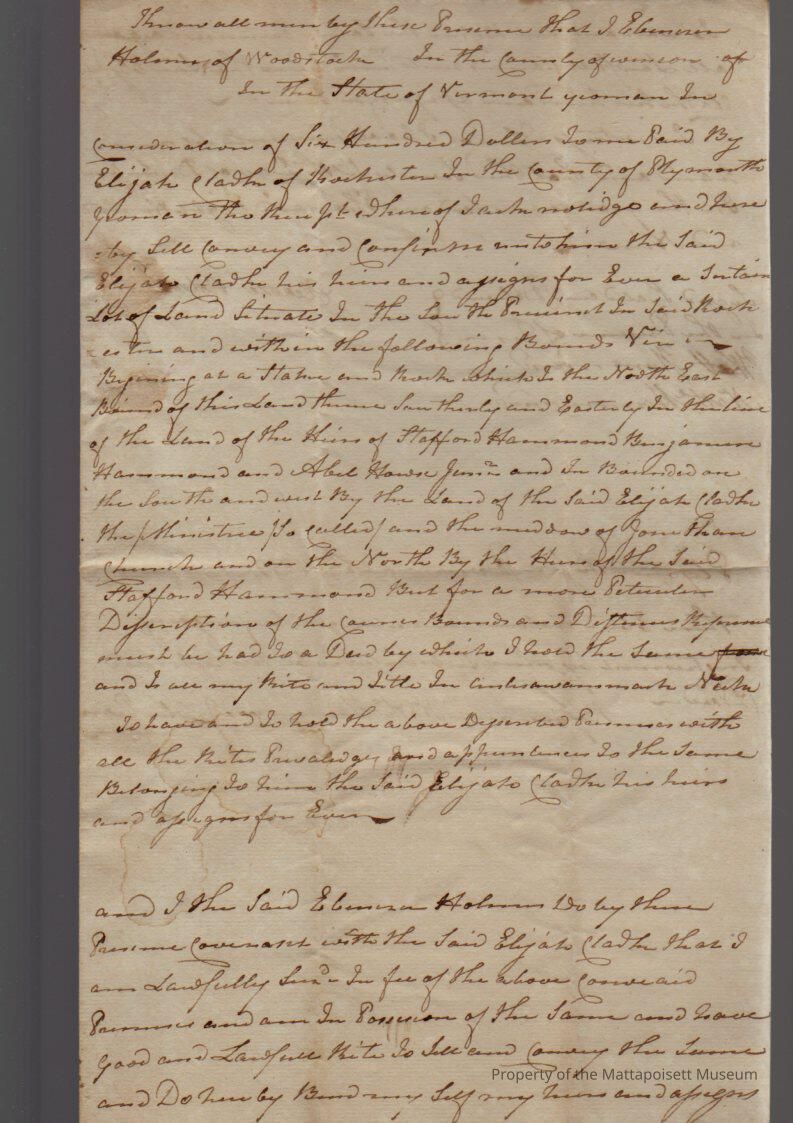 Know all men by these Presence that I Ebenezer
Holmes of Woodstock In the County of winson of
In the State of Vermont yeoman In
Consideration of Six Hundred Dollers to me Paid By
Elijah Cladhn of Rochester In the County of Plymouth
yoman the Receipt whereof I acknolidge and here
=by Sell Convey and Confirm unto him the Said
Elijah Cladhn his heirs and assigns for Ever a Sertain
Lot of Land Situate In the South Precinct In Said Roch
=ester and within the following Bounds Viz
Begining at a Stake and Rock which Is the North East
Bound of this Land thence Southerly and Easterly In the line
of the Land of the Heirs of Stafford Hammond Benjamin
Hammond and Abel House Junr and In Bounded on
the South and west By the Land of the Said Elijah Cladhn
the /Ministree /So Called/ and the meddow of Jonathan
Church and on the North By the Heirs of the Said
Stafford Hammond But for a more Peticuler
Discription of the Courses Bounds and Distences
must be had to a Deed by which I hold the Same
and Is all my Rite and Title In Neck
To have and to hold the above Discribed Premises with
all the Rites Prevaledges and appurtences to the Same
Belonging to him the Said Elijah Cladhn his heirs
and assigns for Ever
and I the Said Ebenezer Holmes Do by these
Presence Covenant with the Said Elijah Cladhn that I
am Lawfully In fee of the above Conveaid
Premises and am In Possesion of the Same and have
Good and Lawfull Rite To Sell and Convey the Same
and Do hereby Bind my Self my heirs and assigns
Property of the Mattapoisett Museum